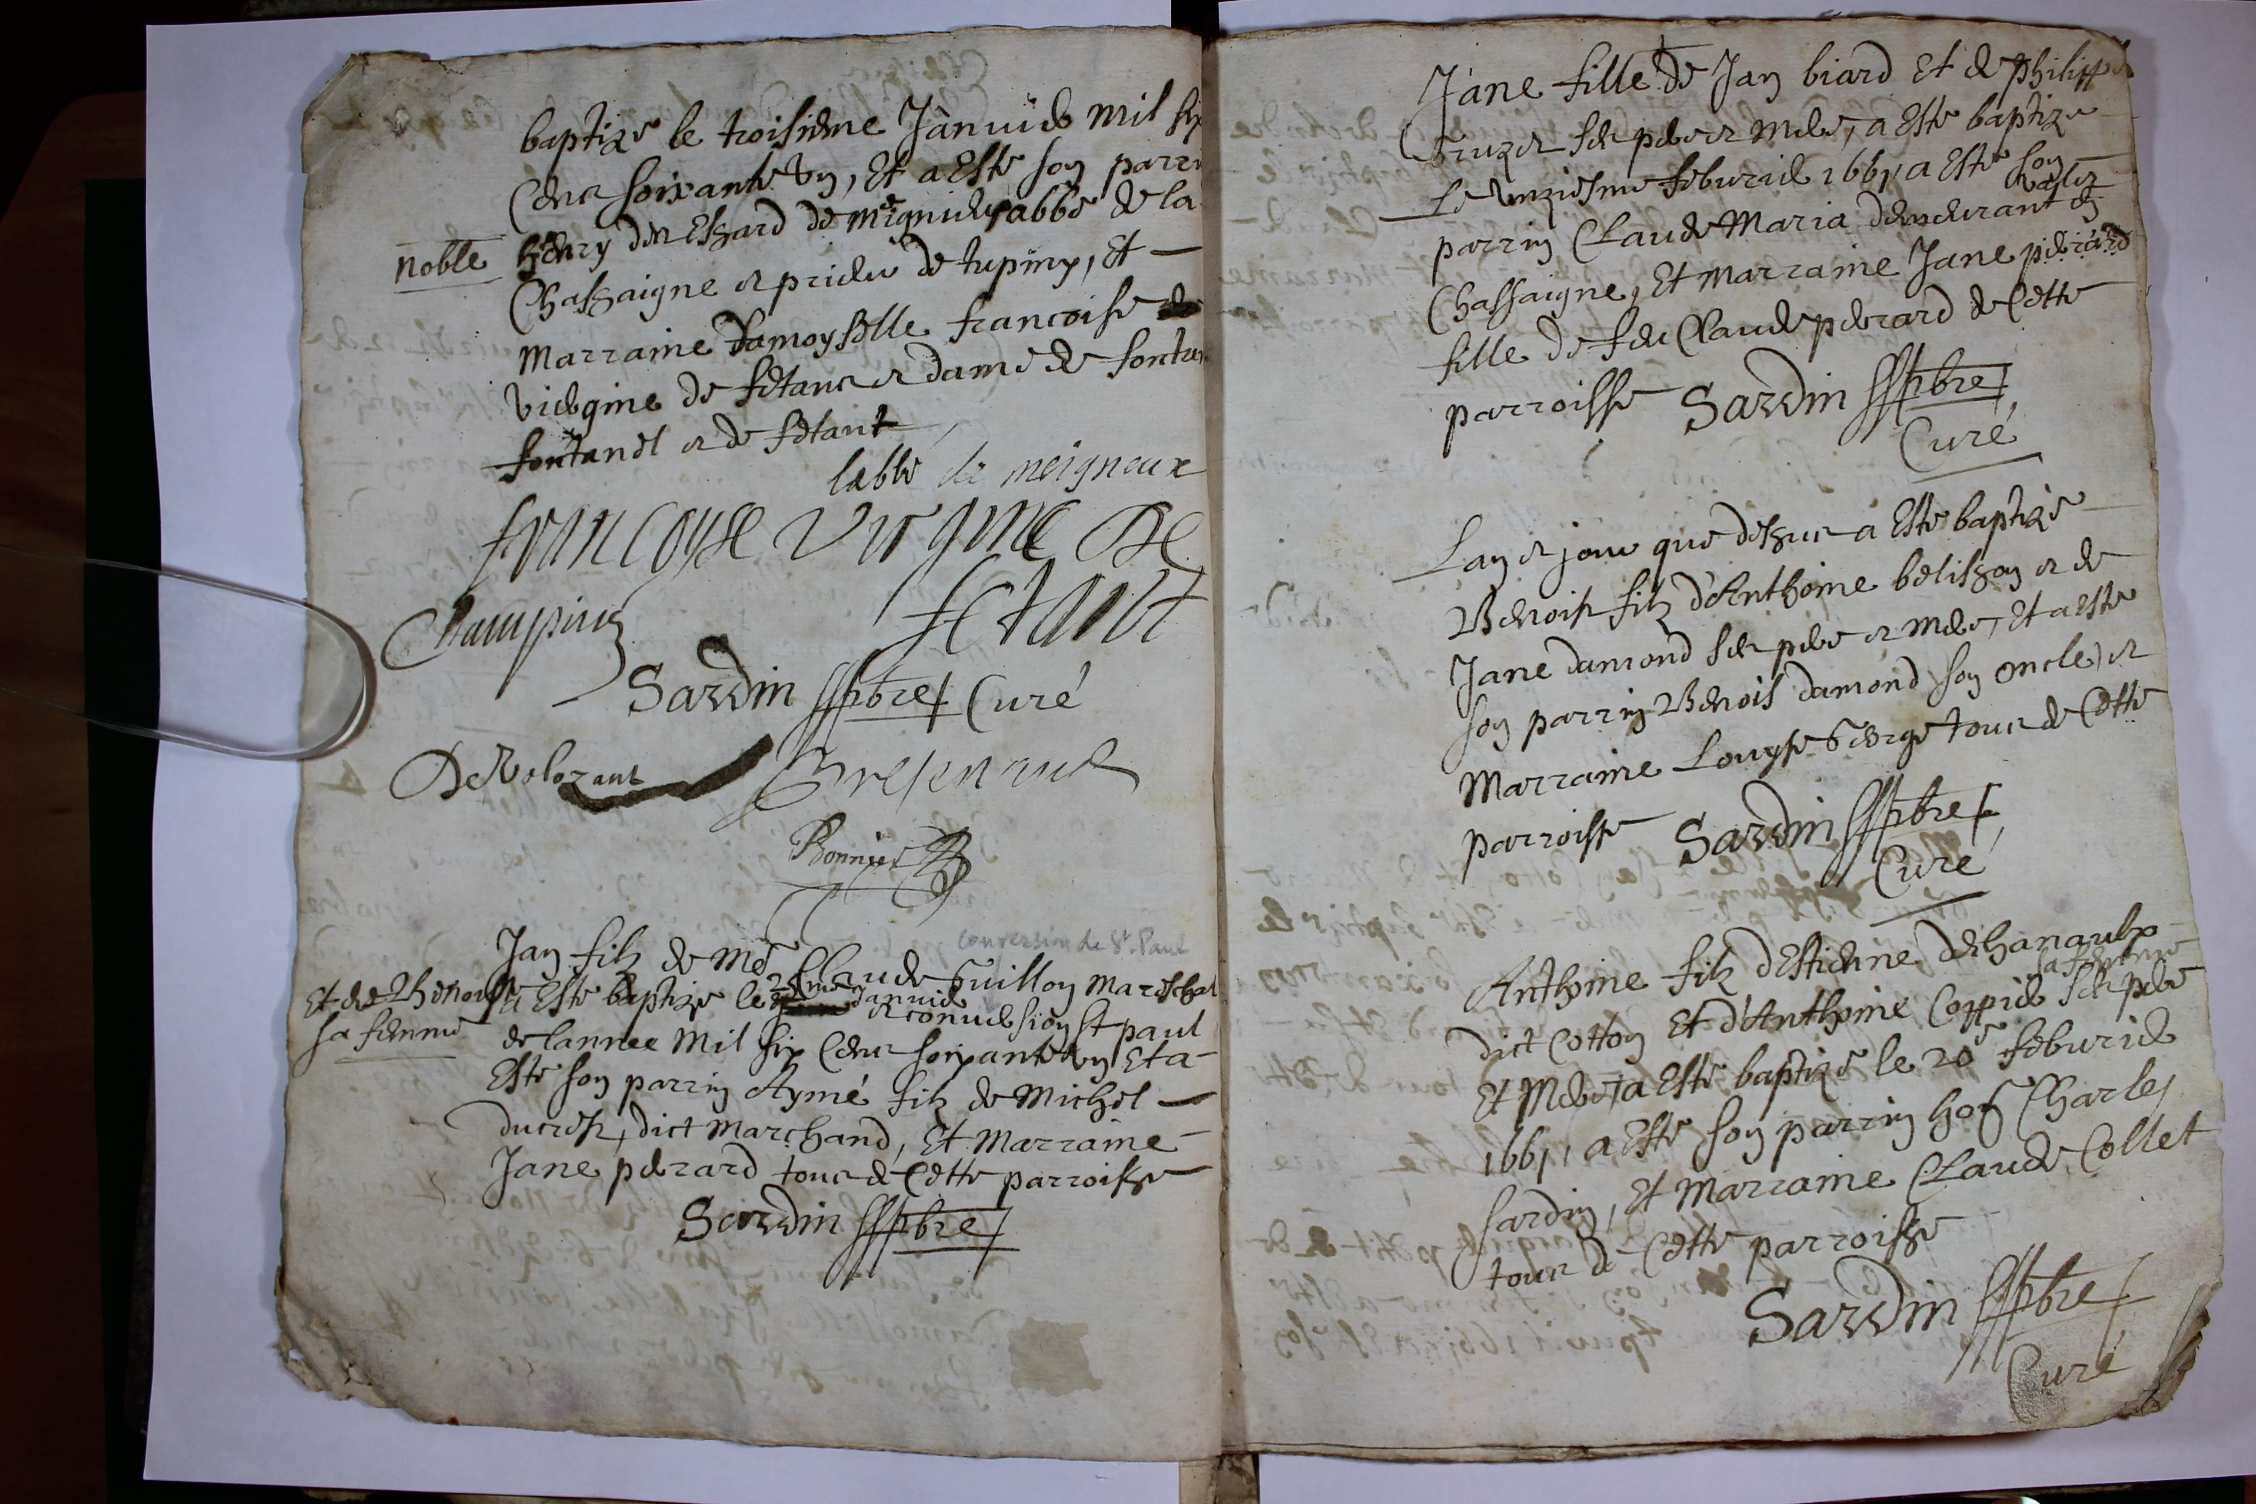 baptize le troisieme Januier mil six
Cens soixante Vn, Et a Este son parrin
noble henry des Essard de Meigneux abbé de la
Chassaigne et prieur de tupiny, Et
Marraine damoyselle francoise
Viergine de fetans et dame de
fontanel et de fetant
labbé de meigneux
francoyse virgine De
fetant
Champin
Sardin pbre Curé
DeVolozant
Bonnier
conversion de St. Paul
Jan filz de Me Claude Guillon Mareschal
Et de Benoiste
sa femme
a Este baptize le 25me Januier et conuersion St paul
de lannee Mil six Cens soixante Vn Et a
Este son parrin Aymé filz de Michel
ducrest, dict marchand, Et Marraine
Jane perard tous de Cette parroisse
Sardin pbre
Jane fille de Jan biard Et de philippe
ses pere et mere, a Este baptize
Le Vnziesme feburier 1661, a Este son
parrin Claude Maria demeurant
Chassaigne, Et Marraine Jane perard
fille de feu Claude perard de Cette
parroisse Sardin pbre
Curé
Lan et jour que dessus a Este baptize
Benoist filz d'Anthoine belisson et de
Jane damond ses pere et mere, Et a Este
son parrin Benois damond son oncle, et
Marraine Louyse George tous de Cette
parroisse Sardin pbre
Curé
Anthoine filz d'Estienne dehanaulx
sa femme
dict Cotton Et d'Anthoine Coppier ses pere
Et Mere, a Este baptizé le 20e feburier
1661, a Este son parrin hon Charles
Sardin, Et Marraine Claude Collet
tous de Cette parroisse
Sardin pbre
Curé